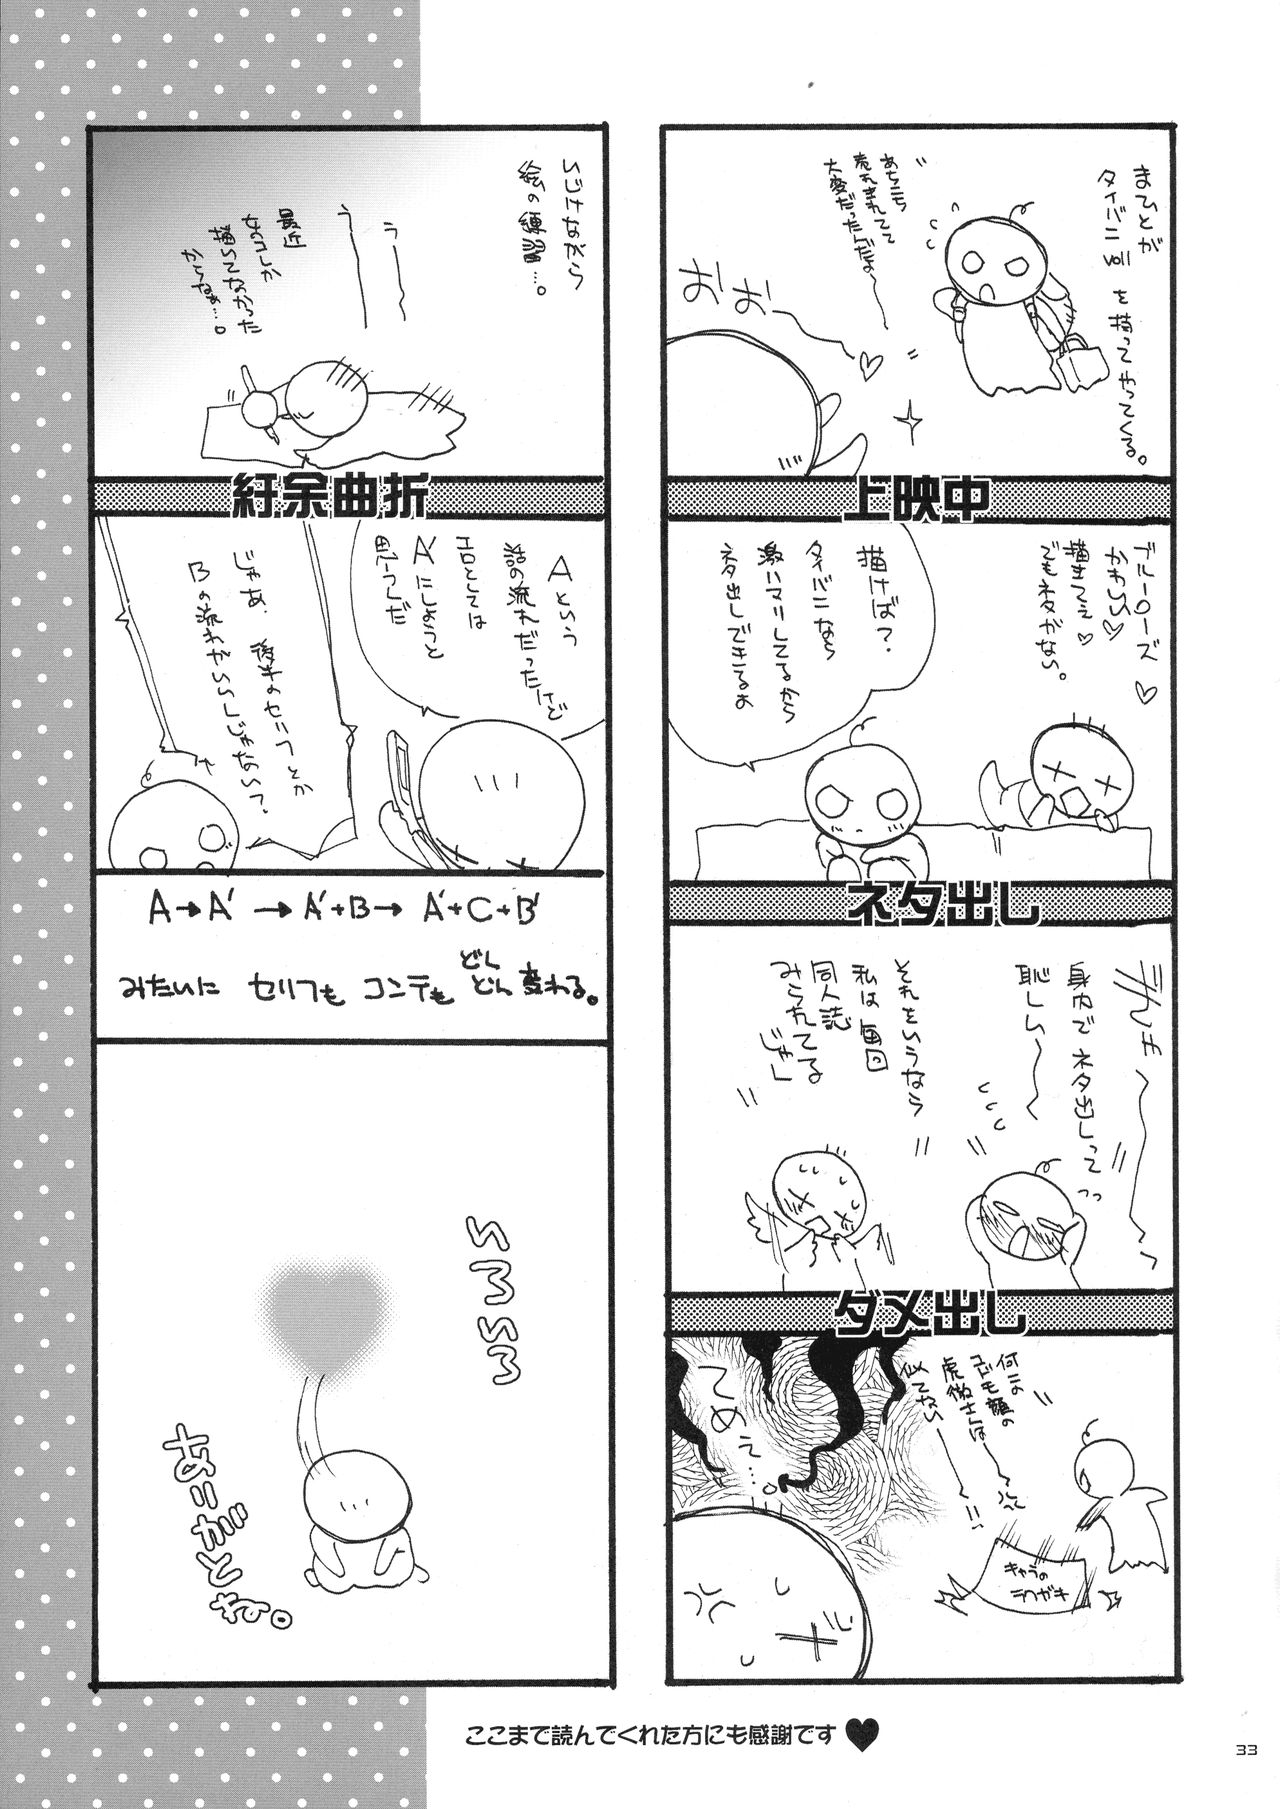 まひとが
タイバニ
vol1
を持ってやってくる。
あちこち
売れまれてて
大変だったんだよ〜
おおー
上映中
ブルーローズ
かわいい
描きてぇ
でもネタがない。
描けば？
タイバニなら
激ハマりしてるから
ネタ出しできるよ
ネタ出し
身内でネタ出しって
恥しい〜
それをいうなら
私は毎回
同人誌
みられてる
じゃん
ダメ出し
何この
コドモ顔の
虎徹さんは〜
似てない〜!!
キャラの
ラクガキ
てめぇ…。
いじけながら
絵の練習…。
う〜
う〜
最近
女のコしか
描いてなかった
からなぁ…。
紆余曲折
Aという
話の流れだったけど
エロとしては
A'にしようと
思うんだ
じゃあ、後半のセリフとか
Bの流れがいいんじゃない？
A→A'→A'+B→A'+C+B'
みたいに セリフも コンテも どんどん 変わる。
いろいろ
ありがとね。
ここまで読んでくれた方にも感謝です♥
33